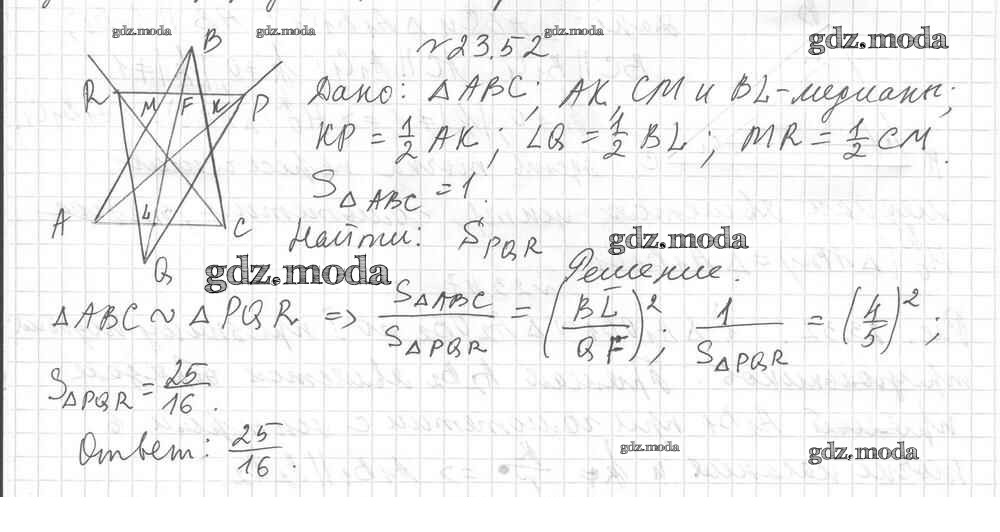 gdz.moda gdz.moda gdz.moda
№ 23.52
B
R M F K P
A L C
Q
Дано: △ABC; AK, CM и BL-медианы;
KP = 1/2 AK; LQ = 1/2 BL; MR = 1/2 CM.
S△ABC = 1.
Найти: SPQR gdz.moda
gdz.moda
Решение.
△ABC ~ △PQR => S△ABC/S△PQR = (BL/QF)²; 1/S△PQR = (4/5)²;
S△PQR = 25/16.
Ответ: 25/16.
gdz.moda gdz.moda